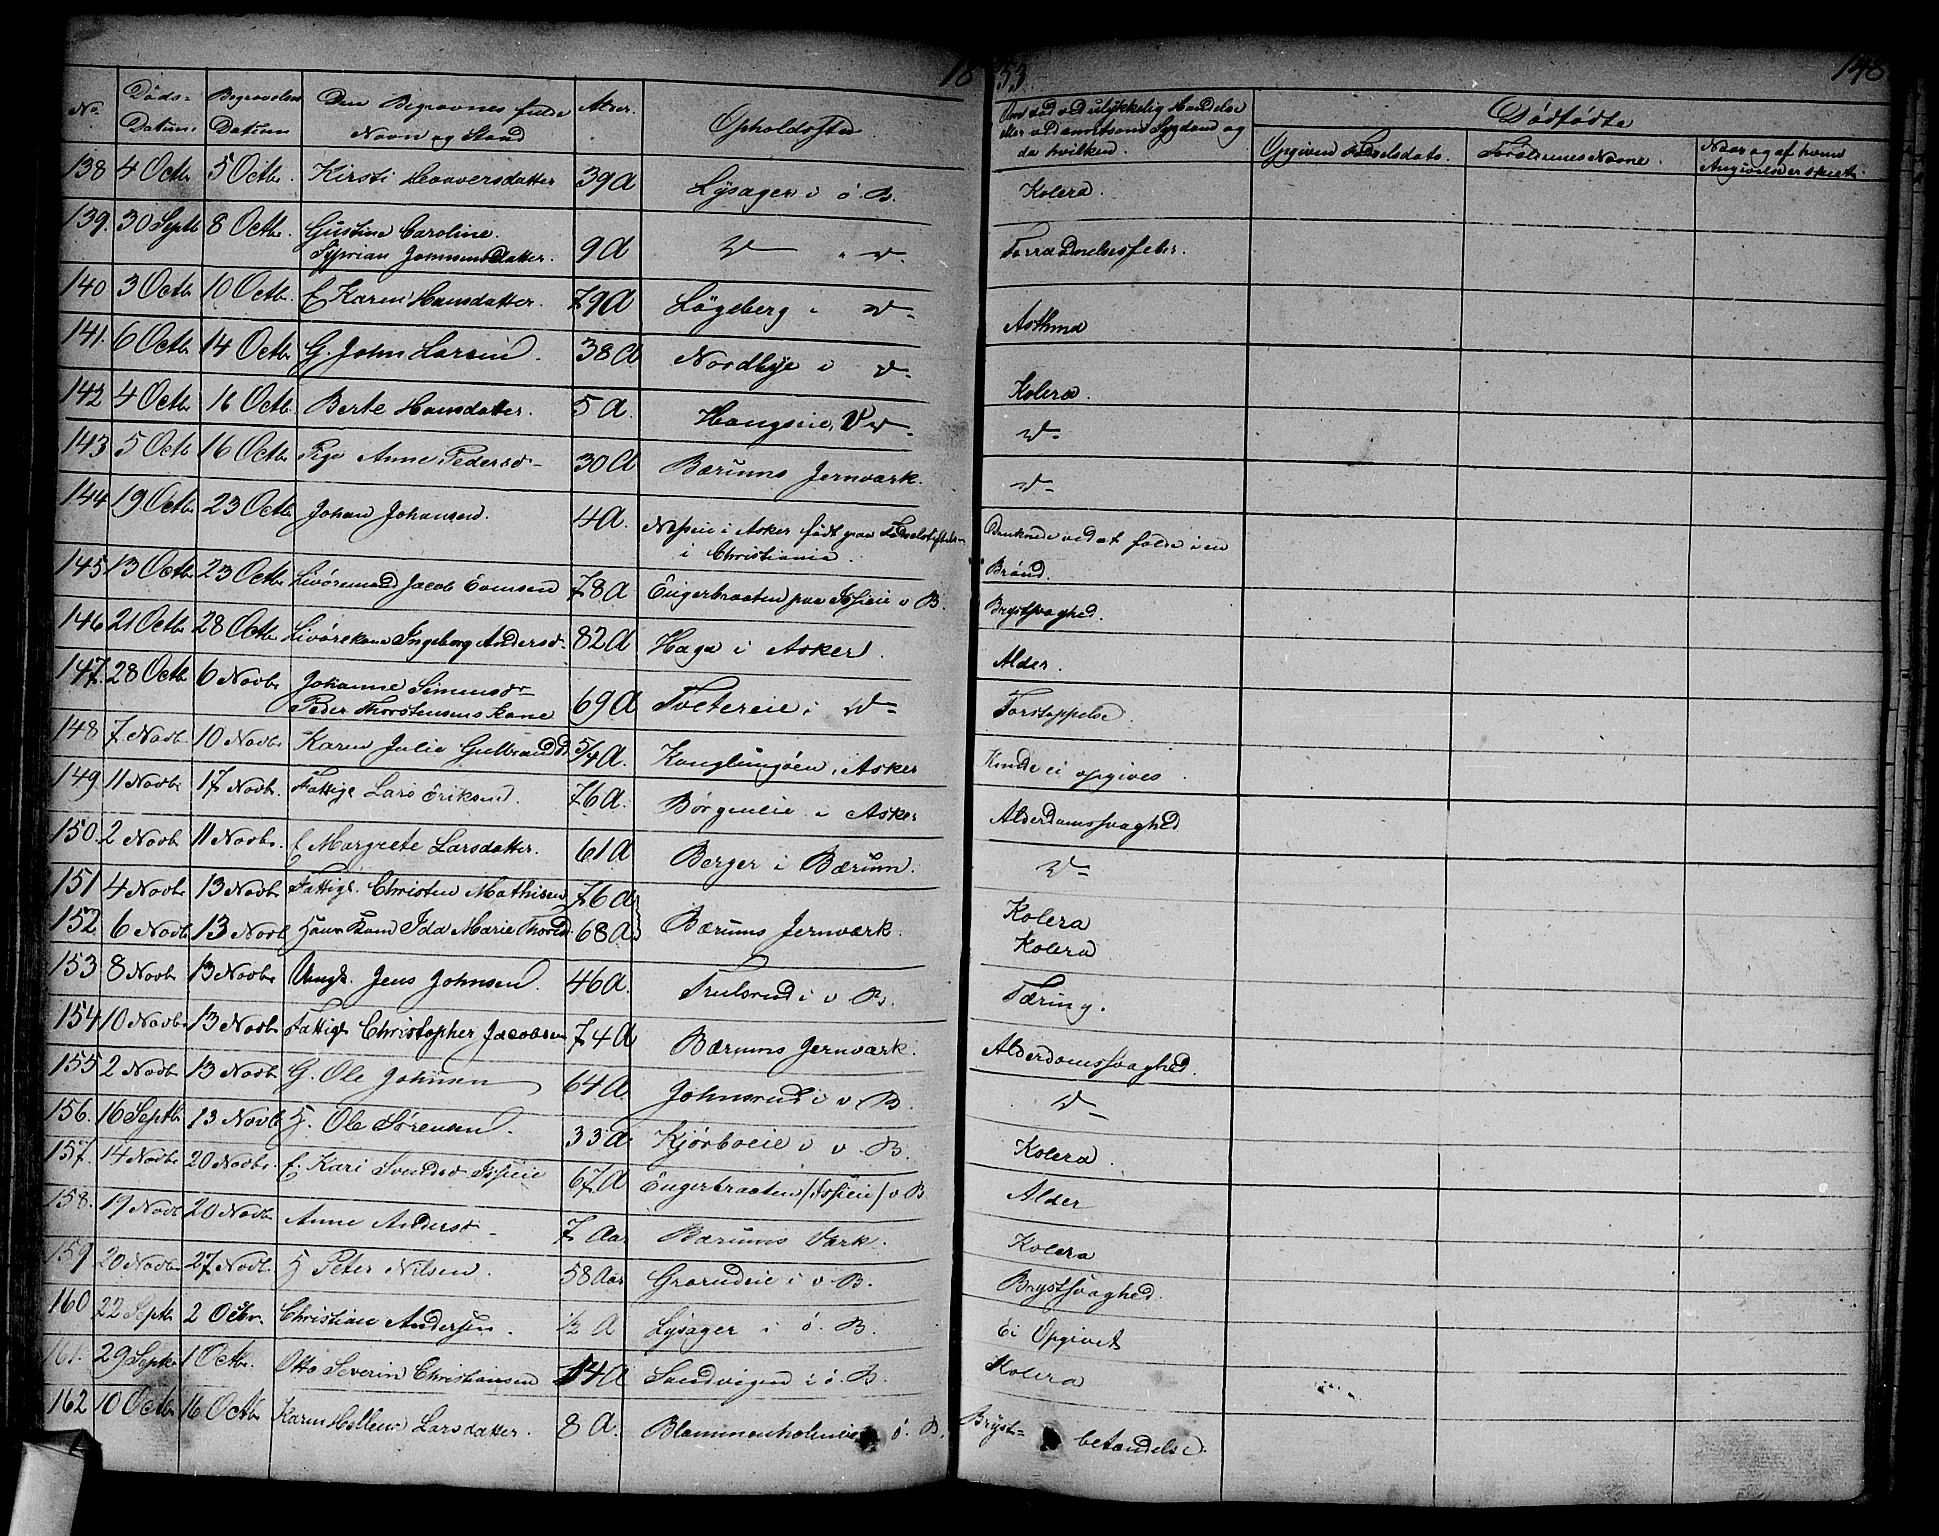 18 53. 148
No. Döds-Datum. Begravelses Datum Den Begravnes fulde Navn og Stand Alder. Opholdssted Om död ved ulykkelig Hændelse eller ved smitsom Sygdom og da hvilken. Dödfödte
Opgiven Födselsdato. Forældrenes Navne. Naar og af hvem Angivelse er skeet.
138 4 Octb 5 Octb. Kirsti Haaversdatter 39 A Lysager i ö B. Kolera.
139. 30 Septb 8 Octb. Gustine Caroline. 9 A Forraadnelsesfeber.
140 3 Octb 10 Octb. E Karen Hansdatter. 79 A Lögeberg Asthma
141. 6 Octb 14 Octb G. John Larsen. 38 A Nordbye i Kolera.
142 4 Octb 16 Octb. Berte Hansdatter. 5 A.
143 5 Octb 16 Octb. Pige Anne Peders 30 A Bærums Jernværk.
144 19 Octb 23 Octb Johan Johansen. 4 A. i Asker födt paa Födselstiftelsen i Christiania. Druknede ved at falde i en Brönd.
145 13 Octb 23 Octb. Livöremand Jacob Evensen 78 A Engerbraaten paa v B. Brystsvaghed.
146 21 Octb 28 Octb. Livörekone Ingeborg Anders 82 A Haga i Asker. Alder.
147. 28 Octb 6 Novb Johanne Simens Peder Thorstensens Kone 69 A Tvetereie i Forstoppelse.
148 7 Novb. 10 Novb. Karen Julie Gulbrandsd 5/4 A. Konglungöen i Asker Kunde ei opgives.
149. 11 Novb. 17 Novb. Fattige Lars Eriksen. 76 A. i Asker Alderdomssvaghed
150. 2 Novb 11 Novb. E Margrete Larsdatter. 61 A Berger i Bærum.
151 4 Novb. 13 Novb Fattigl. Christen Mathisen 76 A. Kolera
152. 6 Novb. 13 Novb Ida Marie Thorsd. 68 A. Bærums Jernværk. Kolera
153 8 Novb. 13 Novb. Ungk. Jens Johnsen. 46 A. Trulsrud i v B. Tæring.
154 10 Novb. 13 Novb. Fattigl Christopher Jacobsen 74 A Bærums Jernværk. Alderdomssvaghed.
155 2 Novb. 13 Novb G. Ole Johnsen 64 A. Johnsrud i v B.
156. 16 Septb. 13 Novb. H. Ole Sörensen. 33 A. Kjörboeie i v B. Kolera.
157. 14 Novb. 20 Novb. E. Kari Svends 67 A Engerbraaten v B Alder
158. 19 Novb. 20 Novb. Anne Anders 7 Aar Bærums Værk. Kolera
159 20 Novb. 27 Novb. H Peter Nilsen. 58 Aar i v B. Brystsvaghed.
160 22 Septb 2 Octbr. Christian Andersen. 1/2 A Lysager i ö. B. Ei Opgivet
161. 29 Septb. 1 Octbr. Otto Severin Christiansen 14 A Sandvigen i ö. B. Kolera
162 10 Octb 16 Octb Karen Hellene Larsdatter. 8 A. Blommenholmeie ö. B. Bryst- betændelse.